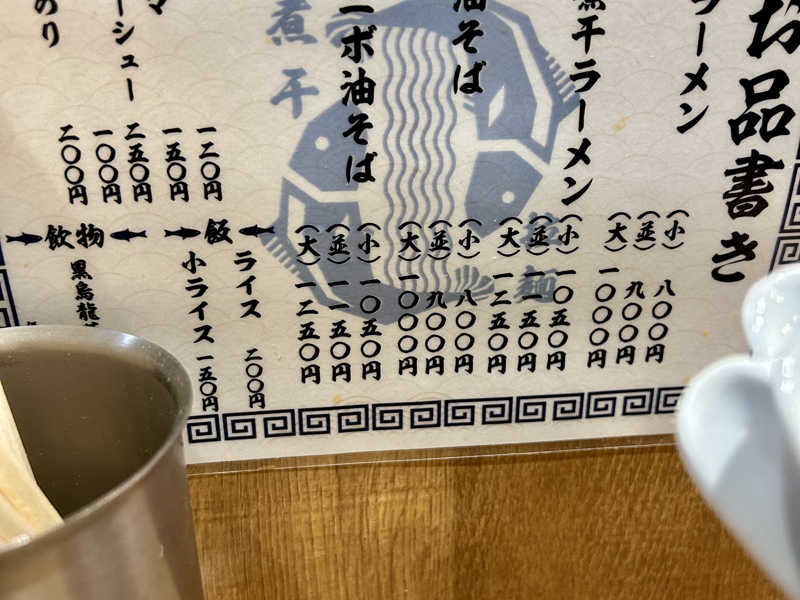 お品書き
ラーメン
(小) 八〇〇円
(並) 九〇〇円
(大) 一〇〇〇円
煮干ラーメン
(小) 一〇五〇円
(並) 一一五〇円
(大) 一二五〇円
油そば
(小) 八〇〇円
(並) 九〇〇円
(大) 一〇〇〇円
ニボ油そば
(小) 一〇五〇円
(並) 一一五〇円
(大) 一二五〇円
煮干
拉麺
一二〇円
マ 一五〇円
ーシュー 二五〇円
一〇〇円
のり 二〇〇円
飯
ライス 二〇〇円
小ライス 一五〇円
飲物
黒烏龍